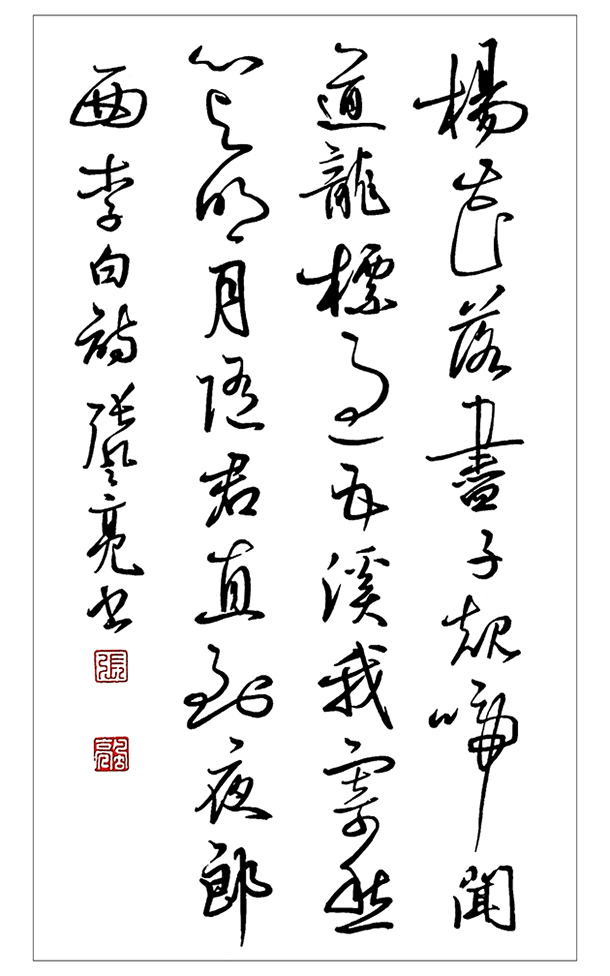 楊花落盡子規啼聞
道龍標過五溪我寄愁
心與明月隨君直到夜郎
西李白詩張亮書
張